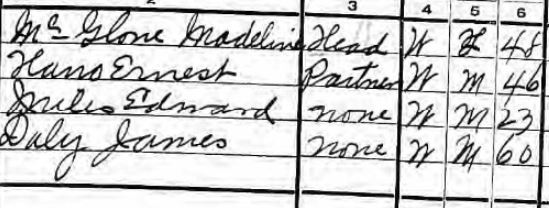 3 4 5 6
Mc Glone Madeline Head W F 48
Hans Ernest Partner W M 46
Miles Edward none W M 23
Daly James none W M 60